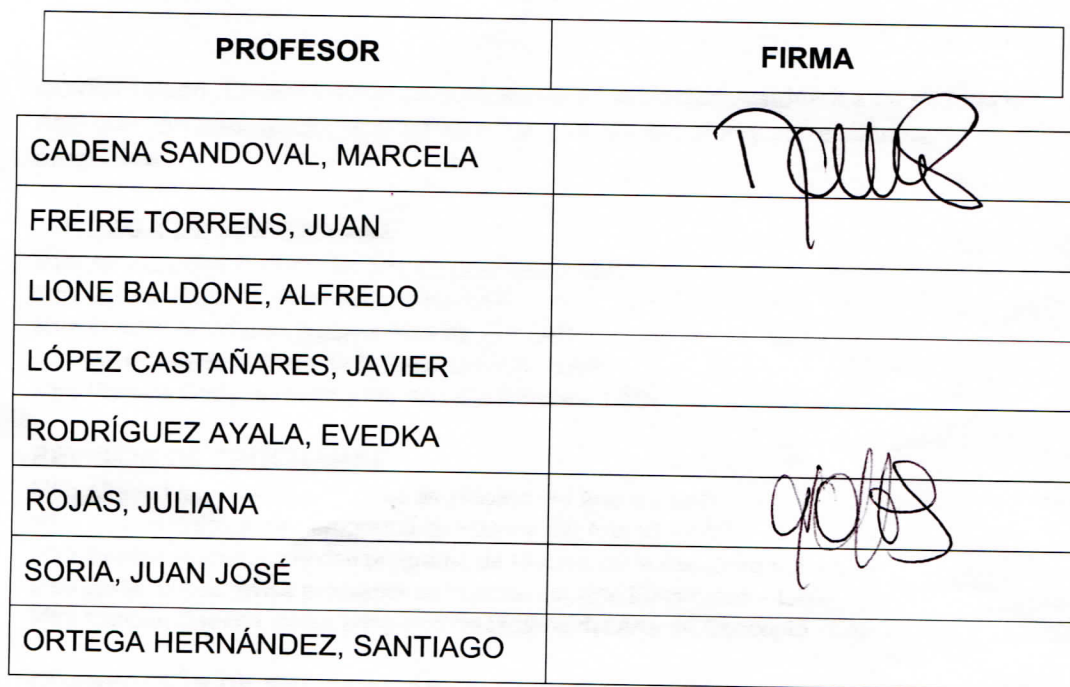 PROFESOR FIRMA
CADENA SANDOVAL, MARCELA
FREIRE TORRENS, JUAN
LIONE BALDONE, ALFREDO
LÓPEZ CASTAÑARES, JAVIER
RODRÍGUEZ AYALA, EVEDKA
ROJAS, JULIANA
SORIA, JUAN JOSÉ
ORTEGA HERNÁNDEZ, SANTIAGO